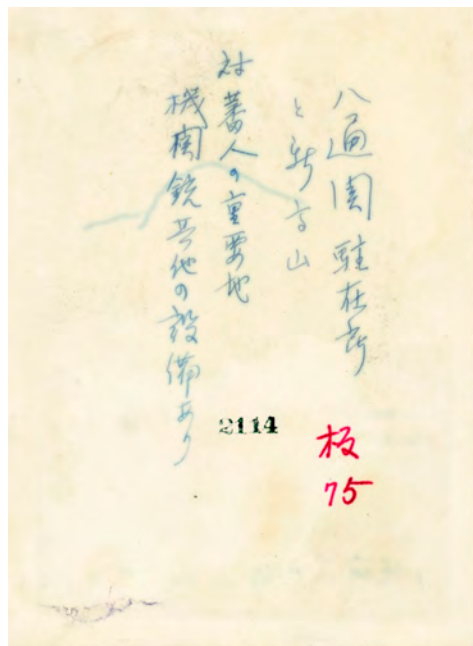 八通関駐在所
と新高山
対蕃人の重要地
機関銃其他の設備あり
2114
板
75